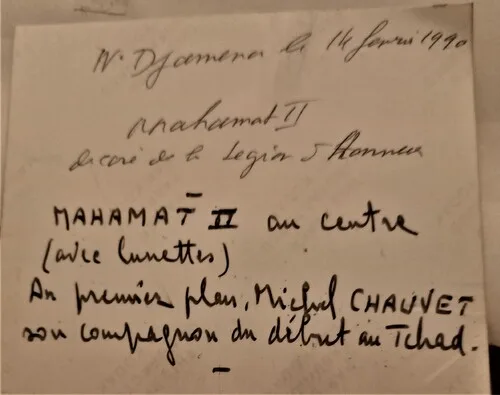 N'Djamena le 14 février 1990
Mahamat II
décoré de la Legion d'Honneur
MAHAMAT II au centre
(avec lunettes)
Au premier plan, Michel CHAUVET
son compagnon du début au Tchad.